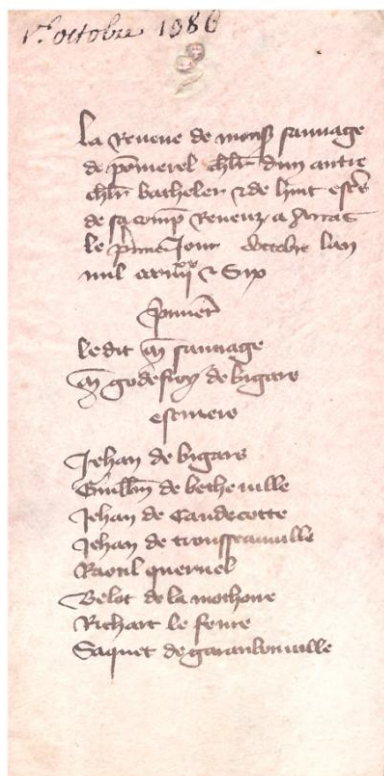 1er octobre 1386
La Reveue de monss sauvage
de pomerel chlr dun autre
chlr bacheler & de huit escrs
de sa comp Reveuz a Arras
le prmier Jour doctobre lan
mil ccc iiijxx & Six
primert
le dit m sauvage
m godefroy de bigars
escuiers
Jehan de bigars
Guillm de betheville
Jehan de Caudecotte
Jehan de trousseauville
Raoul quernel
de la
Richart le fevre
Saquet de